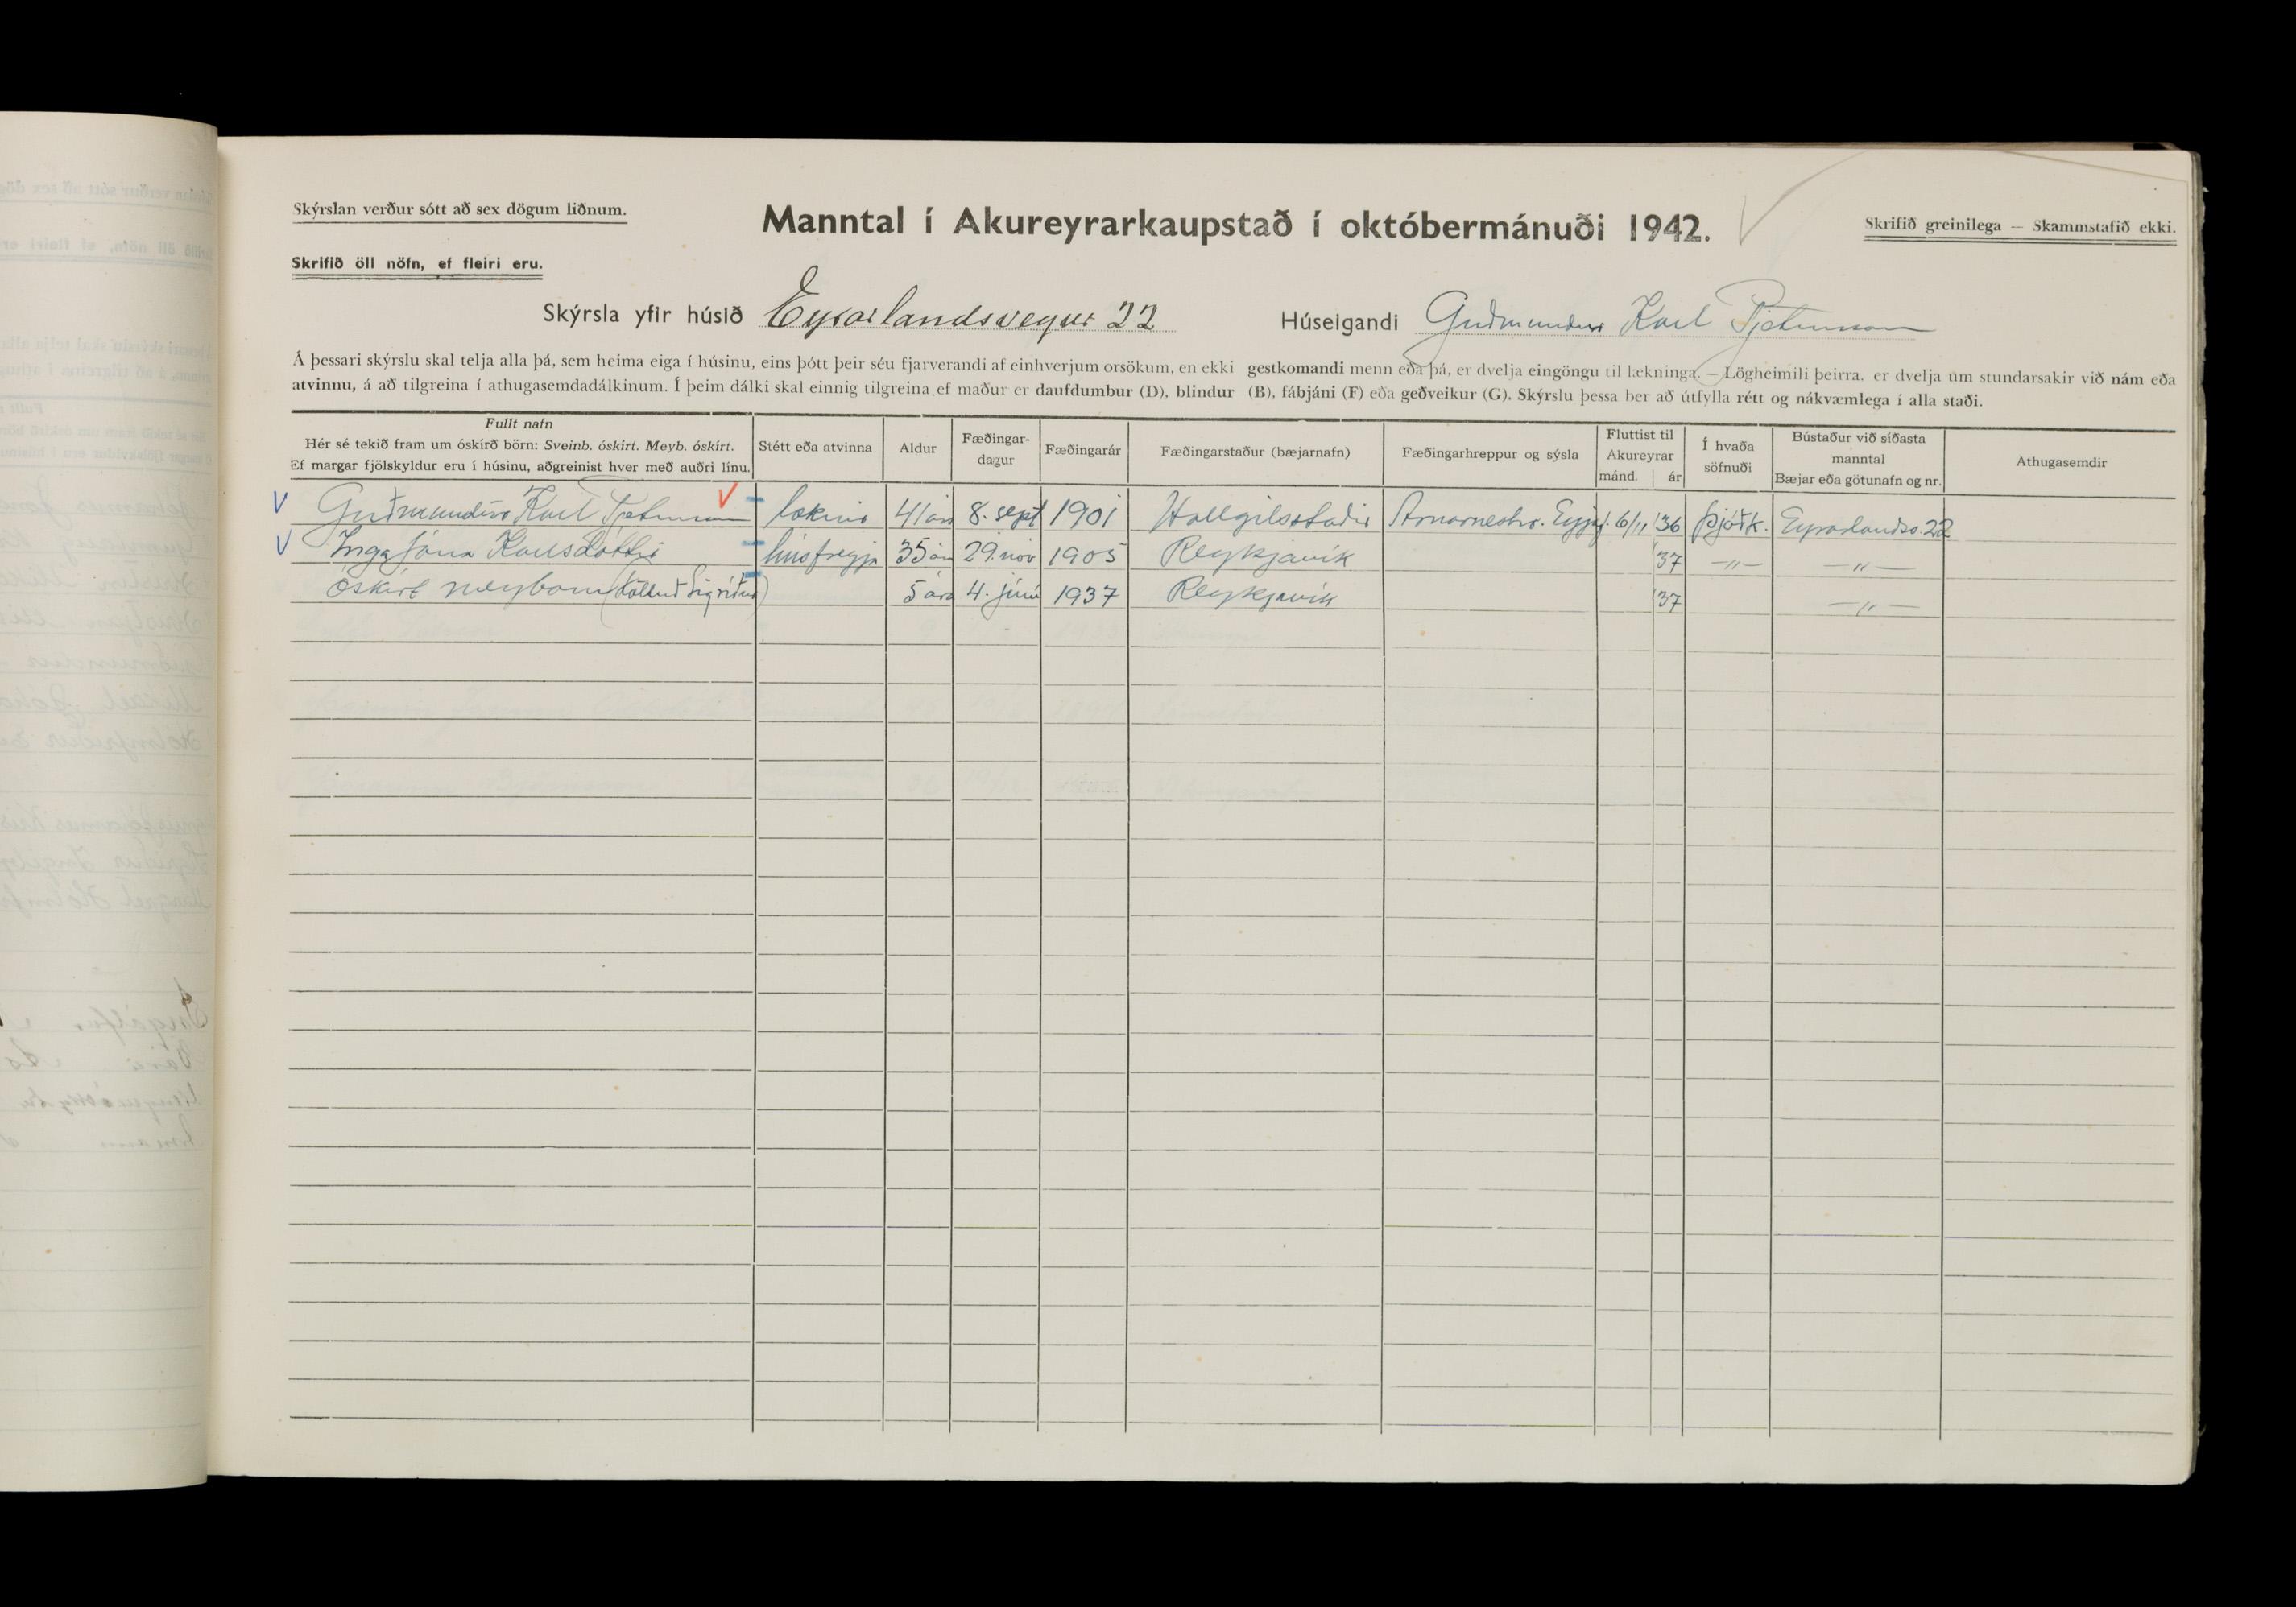 Skýrslan verður sótt að sex dögum liðnum.
Manntal í Akureyrarkaupstað í októbermánuði 1942.
Skrifið greinilega — Skammstafið ekki.
Skrifið öll nöfn, ef fleiri eru.
Skýrsla yfir húsið Eyrarlandsvegur 22 Húseigandi Guðmundur Karl Pjetursson
Á þessari skýrslu skal telja alla þá, sem heima eiga í húsinu, eins þótt þeir séu fjarverandi af einhverjum orsökum, en ekki gestkomandi menn eða þá, er dvelja eingöngu til lækninga. — Lögheimili þeirra, er dvelja um stundarsakir við nám eða
atvinnu, á að tilgreina í athugasemdadálkinum. Í þeim dálki skal einnig tilgreina ef maður er daufdumbur (D), blindur (B), fábjáni (F) eða geðveikur (G). Skýrslu þessa ber að útfylla rétt og nákvæmlega í alla staði.
Fullt nafn
Hér sé tekið fram um óskírð börn: Sveinb. óskírt. Meyb. óskírt.
Ef margar fjölskyldur eru í húsinu, aðgreinist hver með auðri línu.
Stétt eða atvinna
Aldur
Fæðingar-
dagur
Fæðingarár
Fæðingarstaður (bæjarnafn)
Fæðingarhreppur og sýsla
Fluttist til
Akureyrar
mánd. ár
Í hvaða
söfnuði
Bústaður við síðasta
manntal
Bæjar eða götunafn og nr.
Athugasemdir
V Guðmundur Karl Pjetursson V læknir 41 árs 8. sept 1901 Hallgilsstaðir Arnarneshr. Eyjaf. 6/11 '36 þjóðk. Eyrarlandsv. 22
V Inga Jóna Karlsdóttir húsfreyja 35 ára 29. nóv 1905 Reykjavík '37 —"— —"—
óskírt meybarn (kölluð Sigríður) 5 ára 4. júní 1937 Reykjavík '37 —"—